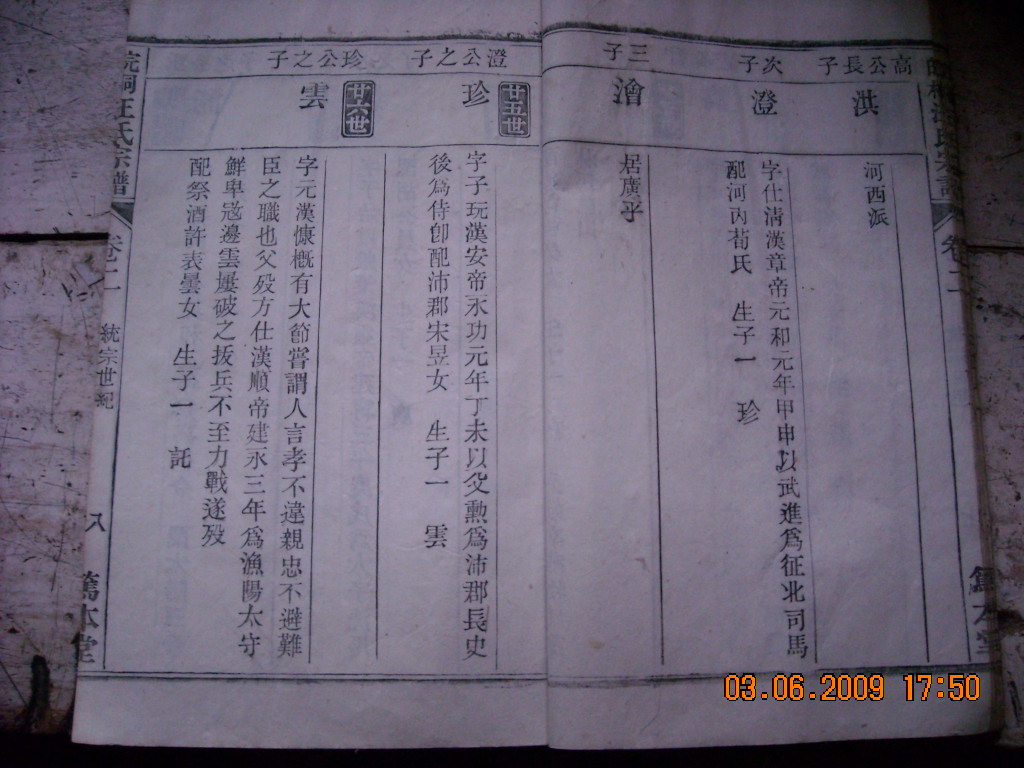 高公長子
洪
河西派
次子
澄
字仕清漢章帝元和元年甲申以武進爲征北司馬
配河内荀氏 生子一 珍
三子
澮
居廣平
澄公之子
廿五世
珍
字子玩漢安帝永功元年丁未以父勲爲沛郡長史
後爲侍郎配沛郡宋昱女 生子一 雲
珍公之子
廿六世
雲
字元漢慷概有大節嘗謂人言孝不違親忠不避難
臣之職也父殁方仕漢順帝建永三年爲漁陽太守
鮮卑宼邊雲屢破之拔兵不至力戰遂殁
配祭酒許表曇女 生子一 託
皖桐汪氏宗譜
卷二
統宗世紀
八
篤本堂
03.06.2009 17:50